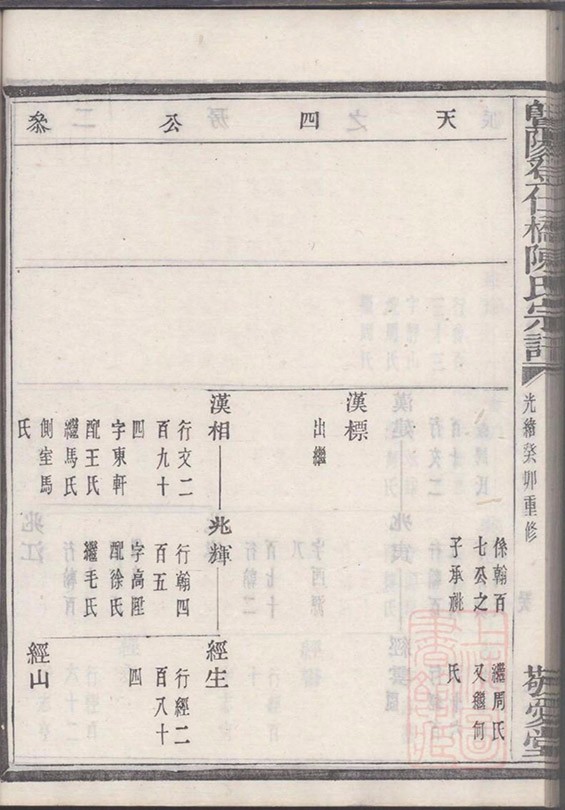 曁陽登仕橋陳氏宗譜
光緒癸卯重修
敬愛堂
天四公叅
係翰百
七公之
子承祧
繼周氏
又繼何
氏
漢標
出繼
漢相
行交二
百九十
四
字東軒
配王氏
繼馬氏
側室馬
氏
兆輝
行翰四
百五
字高陞
配徐氏
繼毛氏
經生
行經二
百八十
四
經山